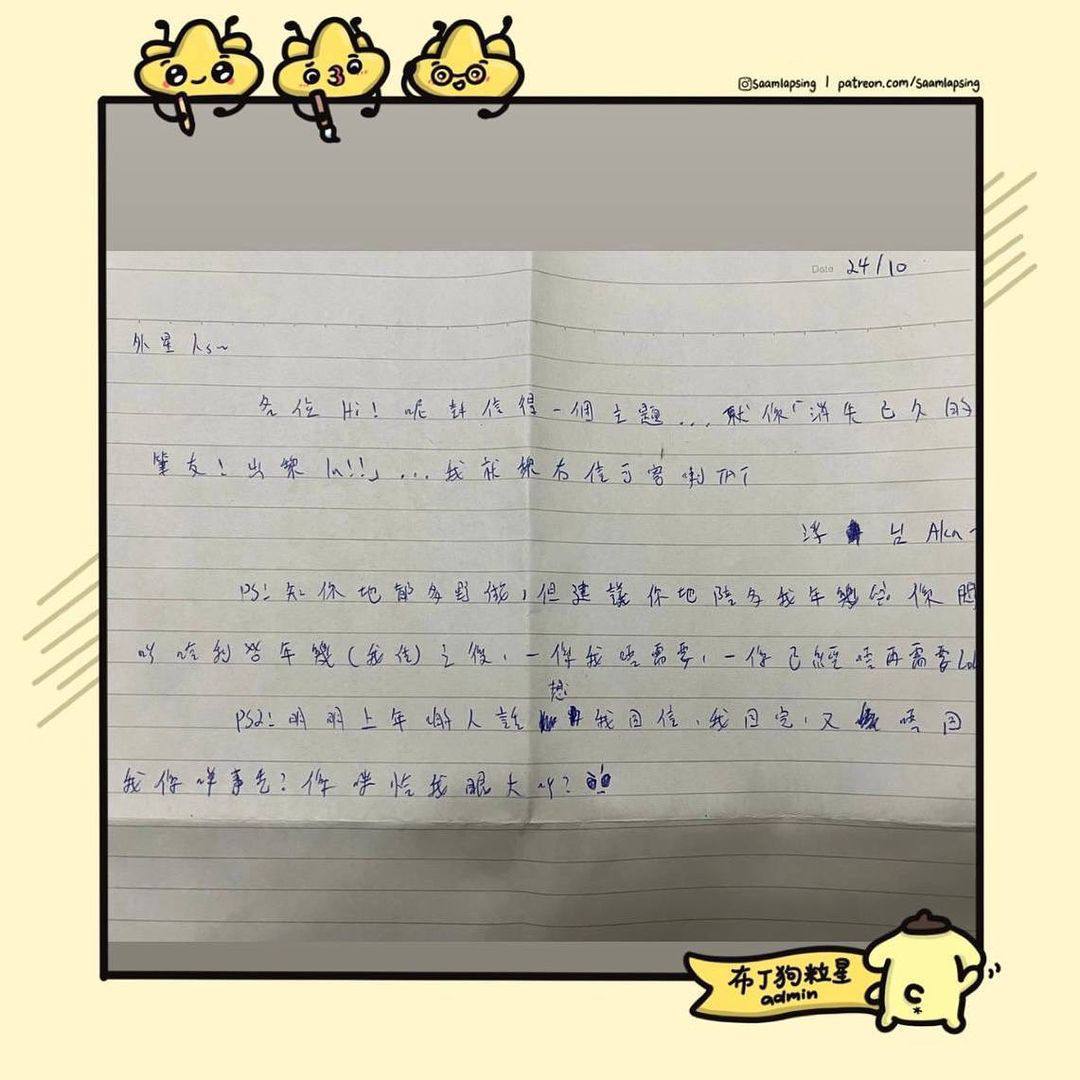 saamlapsing | patreon.com/Saamlapsing
Date 24/10
外星人s~
各位 Hi! 呢封信得一個主題... 就係「消失已久的
筆友!出嚟 la!!」...我就嚟冇信可寫喇TAT
洋 Aka
PS: 知你地都多野做,但建議你地陪多我年幾
年幾(我估)之後,一係我唔需要,一你已經唔再需要Lol
PS2: 明明上年 人話 想我回信,我回完,又 唔回
我你咩事先?你 我眼大 ?
布丁狗粒星
admin